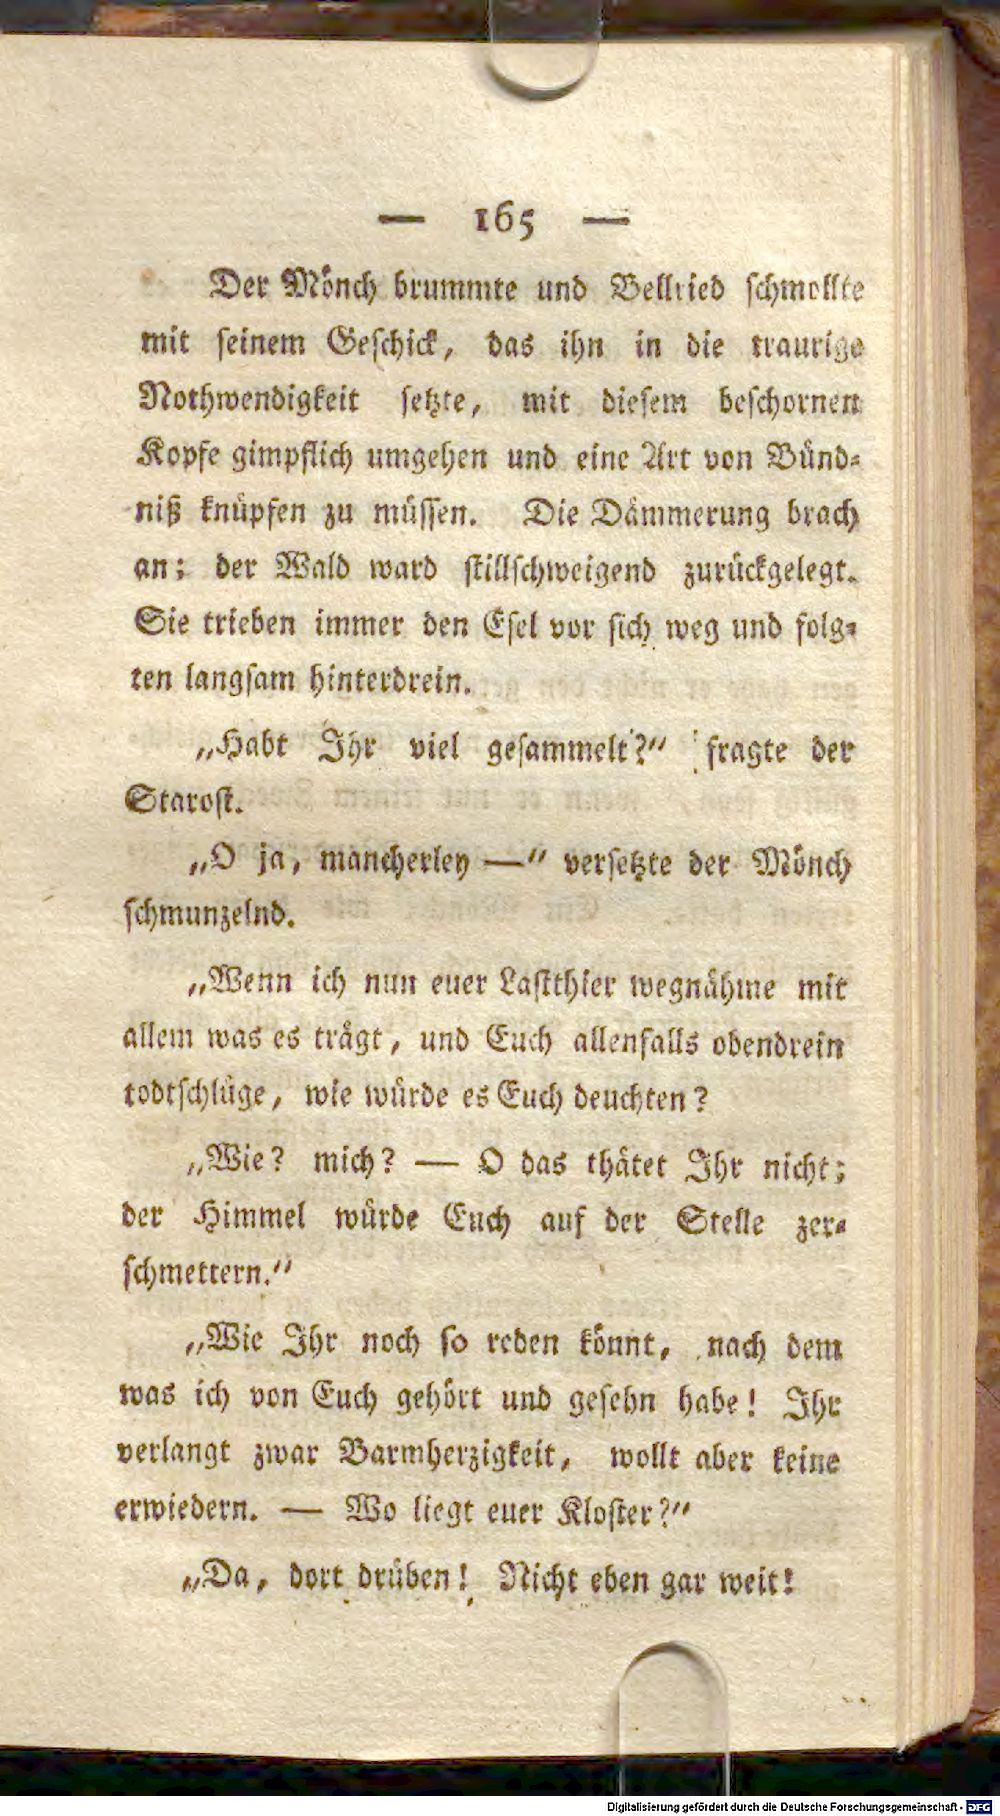 — 165 —
Der Mönch brummte und Bellried schmollte
mit seinem Geschick, das ihn in die traurige
Nothwendigkeit setzte, mit diesem beschornen
Kopfe gimpflich umgehen und eine Art von Bünd-
niß knüpfen zu müssen. Die Dämmerung brach
an; der Wald ward stillschweigend zurückgelegt.
Sie trieben immer den Esel vor sich weg und folg-
ten langsam hinterdrein.
„Habt Ihr viel gesammelt?“ fragte der
Starost.
„O ja, mancherley —“ versetzte der Mönch
schmunzelnd.
„Wenn ich nun euer Lastthier wegnähme mit
allem was es trägt, und Euch allenfalls obendrein
todtschlüge, wie würde es Euch deuchten?
„Wie? mich? — O das thätet Ihr nicht;
der Himmel würde Euch auf der Stelle zer-
schmettern.“
„Wie Ihr noch so reden könnt, nach dem
was ich von Euch gehört und gesehn habe! Ihr
verlangt zwar Barmherzigkeit, wollt aber keine
erwiedern. — Wo liegt euer Kloster?“
„Da, dort drüben! Nicht eben gar weit!
Digitalisierung gefördert durch die Deutsche Forschungsgemeinschaft - DFG